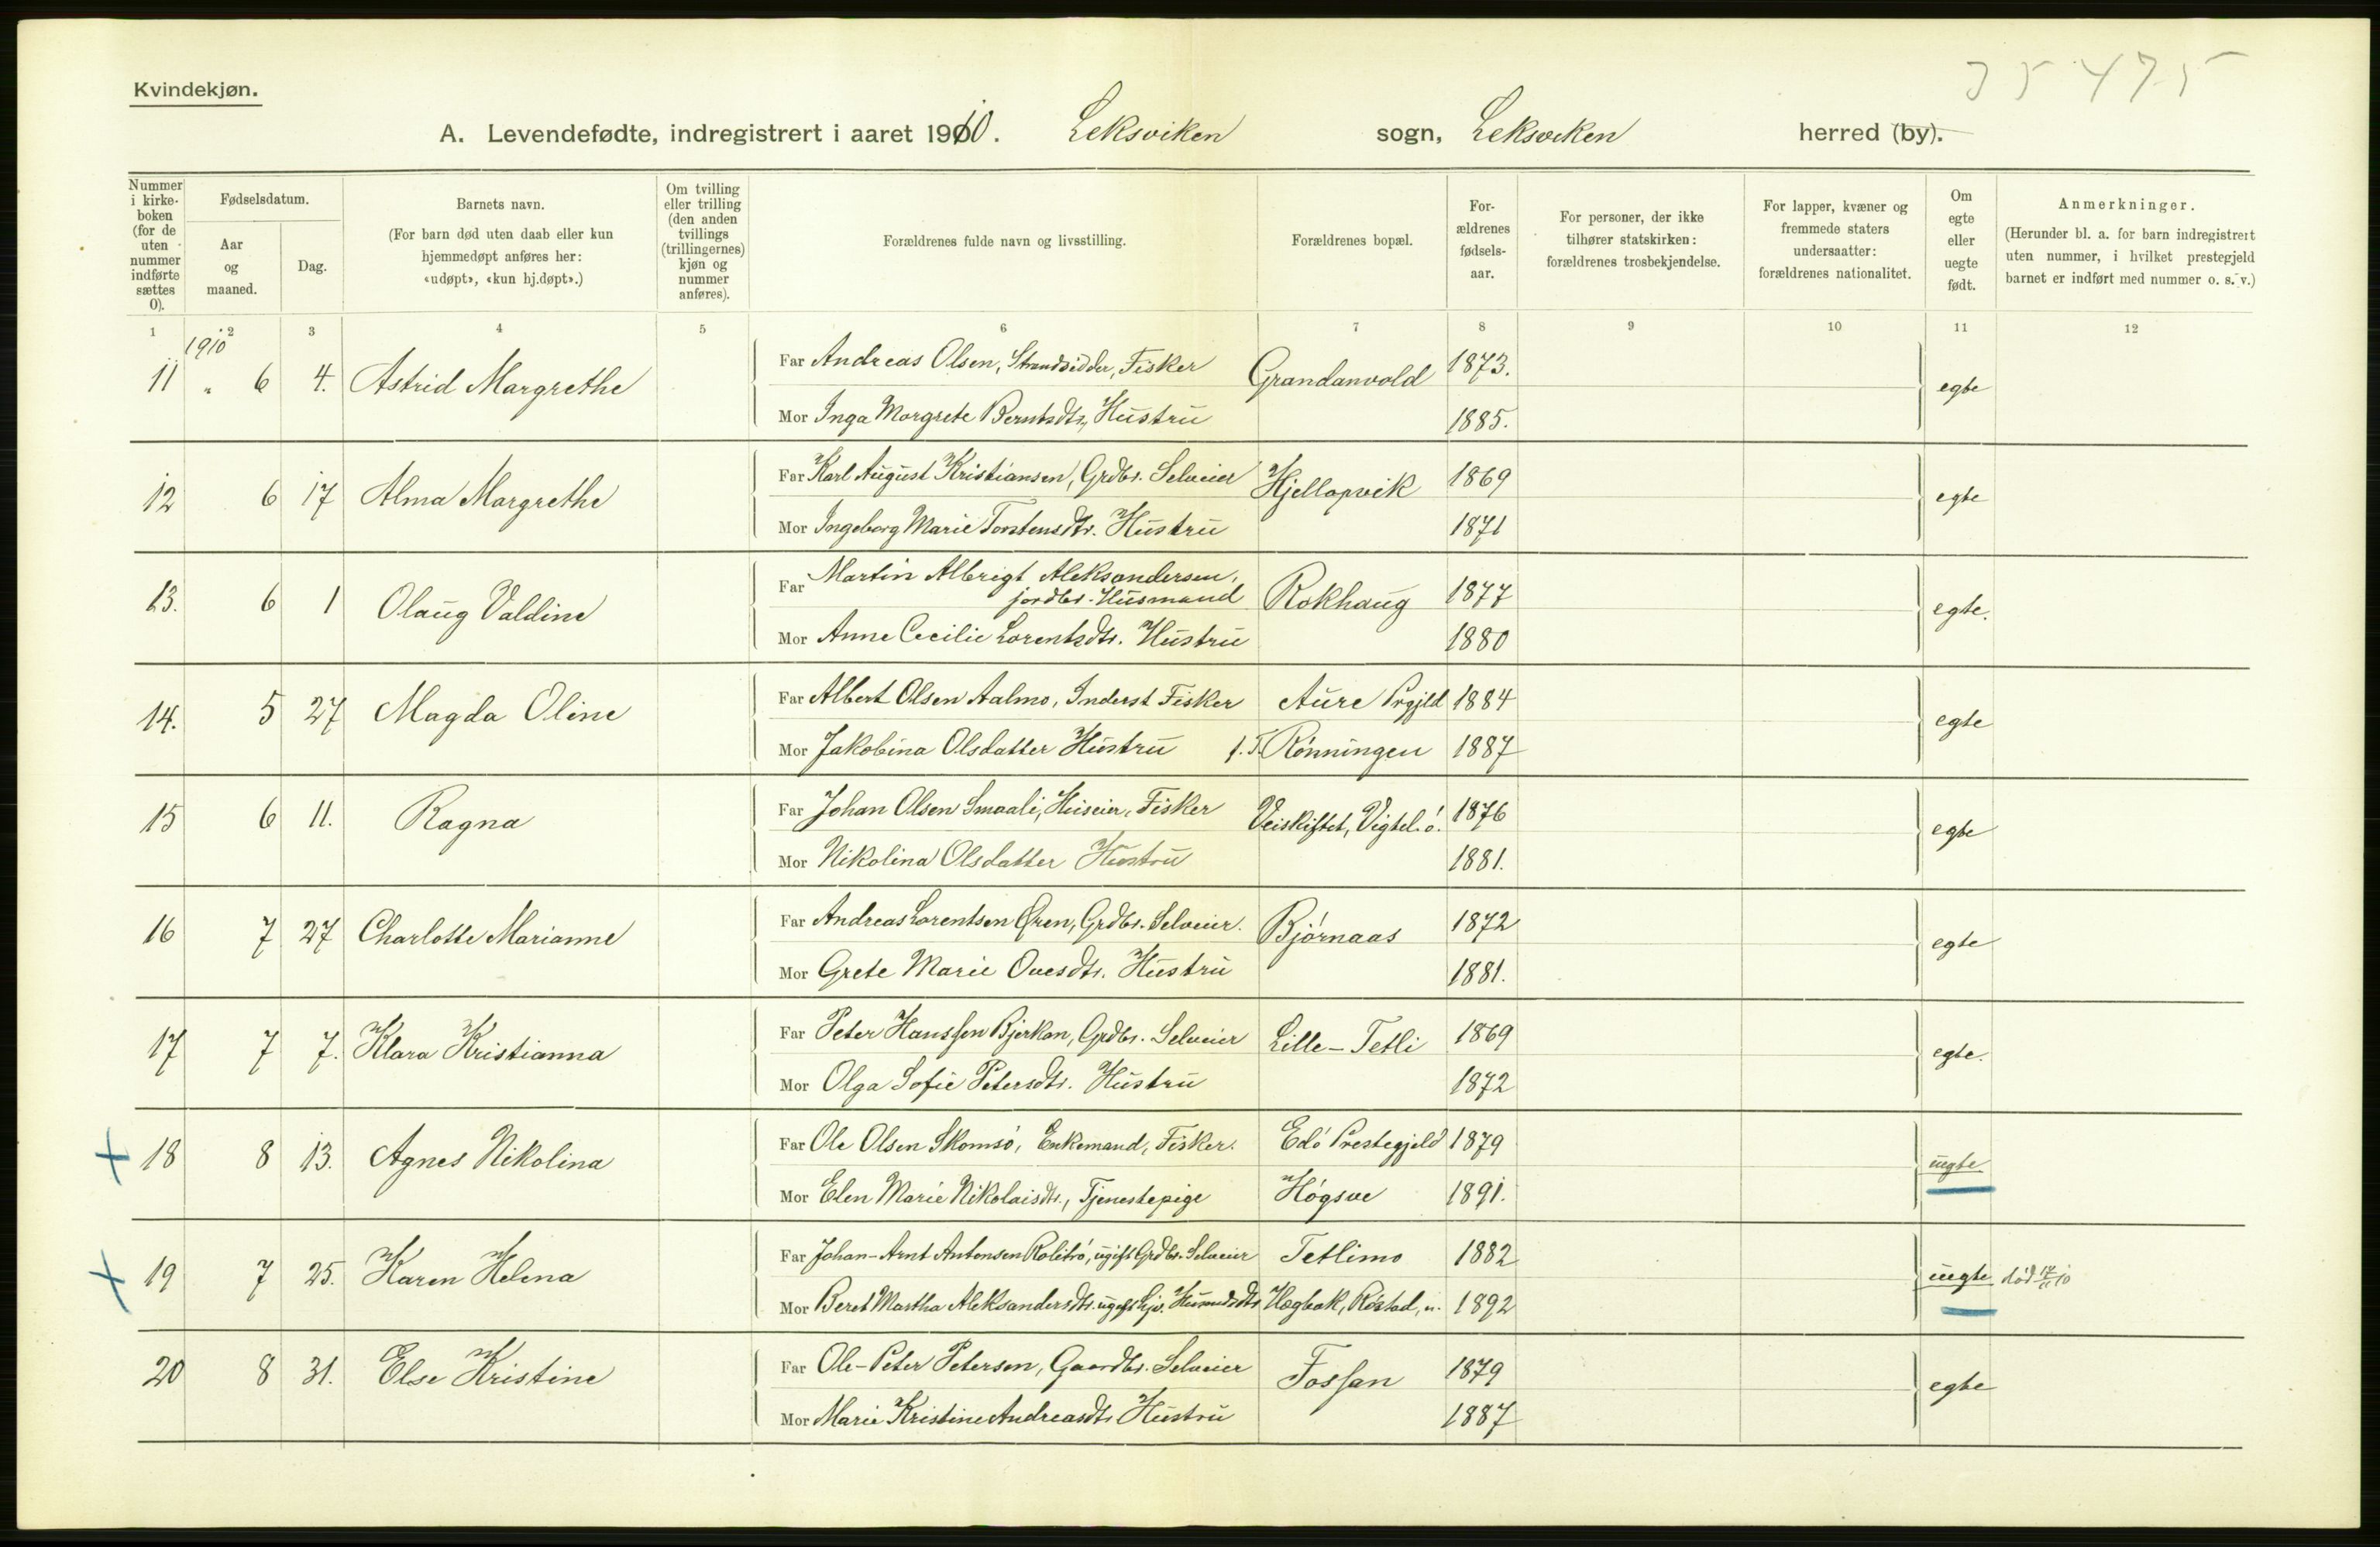 35475
Kvindekjøn.
A. Levendefødte, indregistrert i aaret 1910. Leksviken sogn, Leksviken herred (by).
Nummer i kirkeboken (for de uten nummer indførte sættes 0).
Fødselsdatum.
Aar og maaned.
Dag.
Barnets navn.
(For barn død uten daab eller kun hjemmedøpt anføres her: «udøpt», «kun hj.døpt».)
Om tvilling eller trilling (den anden tvillings (trillingernes) kjøn og nummer anføres).
Forældrenes fulde navn og livsstilling.
Forældrenes bopæl.
Forældrenes fødselsaar.
For personer, der ikke tilhører statskirken: forældrenes trosbekjendelse.
For lapper, kvæner og fremmede staters undersaatter: forældrenes nationalitet.
Om egte eller uegte født.
Anmerkninger.
(Herunder bl. a. for barn indregistrert uten nummer, i hvilket prestegjeld barnet er indført med nummer o. s. v.)
1 2 3 4 5 6 7 8 9 10 11 12
1910
11 " 6 4. Astrid Margrethe Far Andreas Olsen, Strandsidder, Fisker Grandanvold 1873. egte
Mor Inga Margrete Berntsdtr, Hustru 1885.
12 6 17 Alma Margrethe Far Karl August Kristiansen, Grdbr. Selveier Hjellopvik 1869 egte
Mor Ingeborg Marie Torstensdtr. Hustru 1871
13. 6 1 Olaug Valdine Far Martin Albrigt Aleksandersen, jordbr. Husmand Rokhaug 1877 egte.
Mor Anne Cecilie Lorentsdtr. Hustru 1880
14. 5 27 Magda Oline Far Albert Olsen Aalmo, Inderst Fisker Aure Prgjld 1884 egte
Mor Jakobina Olsdatter Hustru f.T. Rønningen 1887
15 6 11. Ragna Far Johan Olsen Smaali, Huseier, Fisker Veiskiftet, Vigtel.ö. 1876 egte
Mor Nikolina Olsdatter Hustru 1881.
16 7 27 Charlotte Marianne Far Andreas Lorentsen Øren, Grdbr. Selveier. Bjørnaas 1872 egte
Mor Grete Marie Ovesdtr. Hustru 1881.
17 7 7. Klara Kristianna Far Peter Hanssen Bjerkan, Grdbr. Selveier Lille-Tetli 1869 egte.
Mor Olga Sofie Petersdtr. Hustru 1872
+ 18 8 13. Agnes Nikolina Far Ole Olsen Skomsø, Enkemand, Fisker. Edø Prestegjeld 1879 uegte
Mor Elen Marie Nikolaisdtr., Tjenestepige Høgsve 1891.
+ 19 7 25. Karen Helena Far Johan-Arnt Antonsen Rolitrø, ugift Grdbr. Selveier Tetlimo 1882 uegte død 17/11 10
Mor Beret Martha Aleksandersdtr. ugift Hægbak, Røstad, u. 1892
20 8 31. Else Kristine Far Ole-Peter Petersen, Gaardbr. Selveier Fossan 1879 egte
Mor Marie Kristine Andreasdtr Hustru 1887